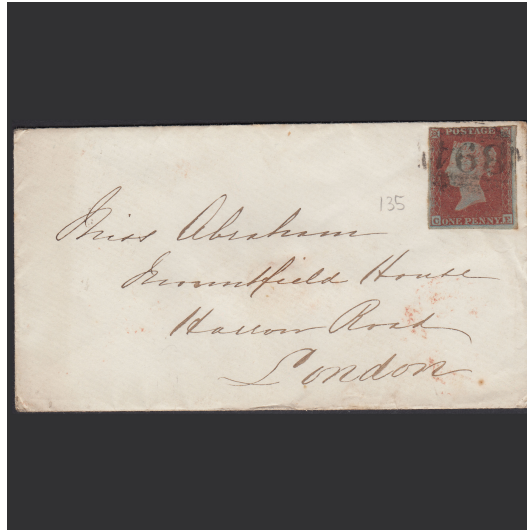 POSTAGE
ONE PENNY
135
Miss Abraham
Mountfield House
Harrow Road
London